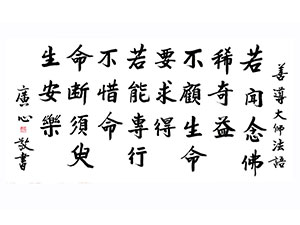 善導大师法語
若聞念佛
稀奇益
不顧生命
要求得
若能專行
不惜命
命断須臾
生安樂
廣心敬書